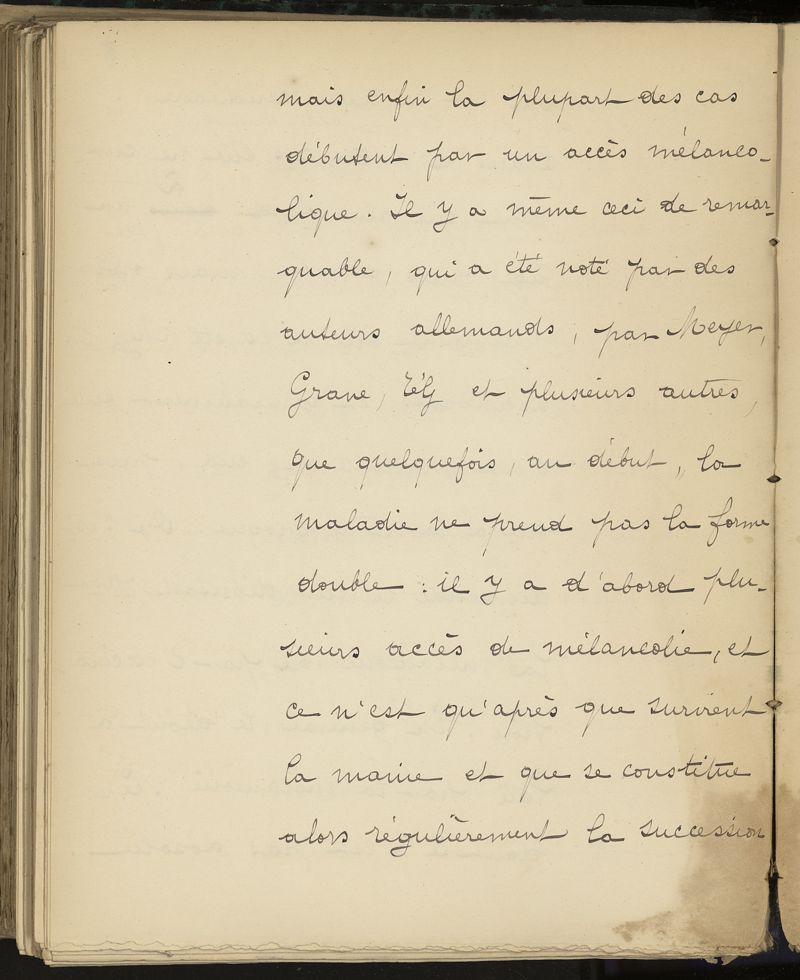 mais enfin la plupart des cas
débutent par un accès mélanco-
lique. Il y a même ceci de remar-
quable, qui a été noté par des
auteurs allemands, par Meyer,
Grane, et plusieurs autres,
que quelquefois, au début, la
maladie ne prend pas la forme
double : il y a d'abord plu-
sieurs accès de mélancolie, et
ce n'est qu'après que survient
la manie et que se constitue
alors régulièrement la succession